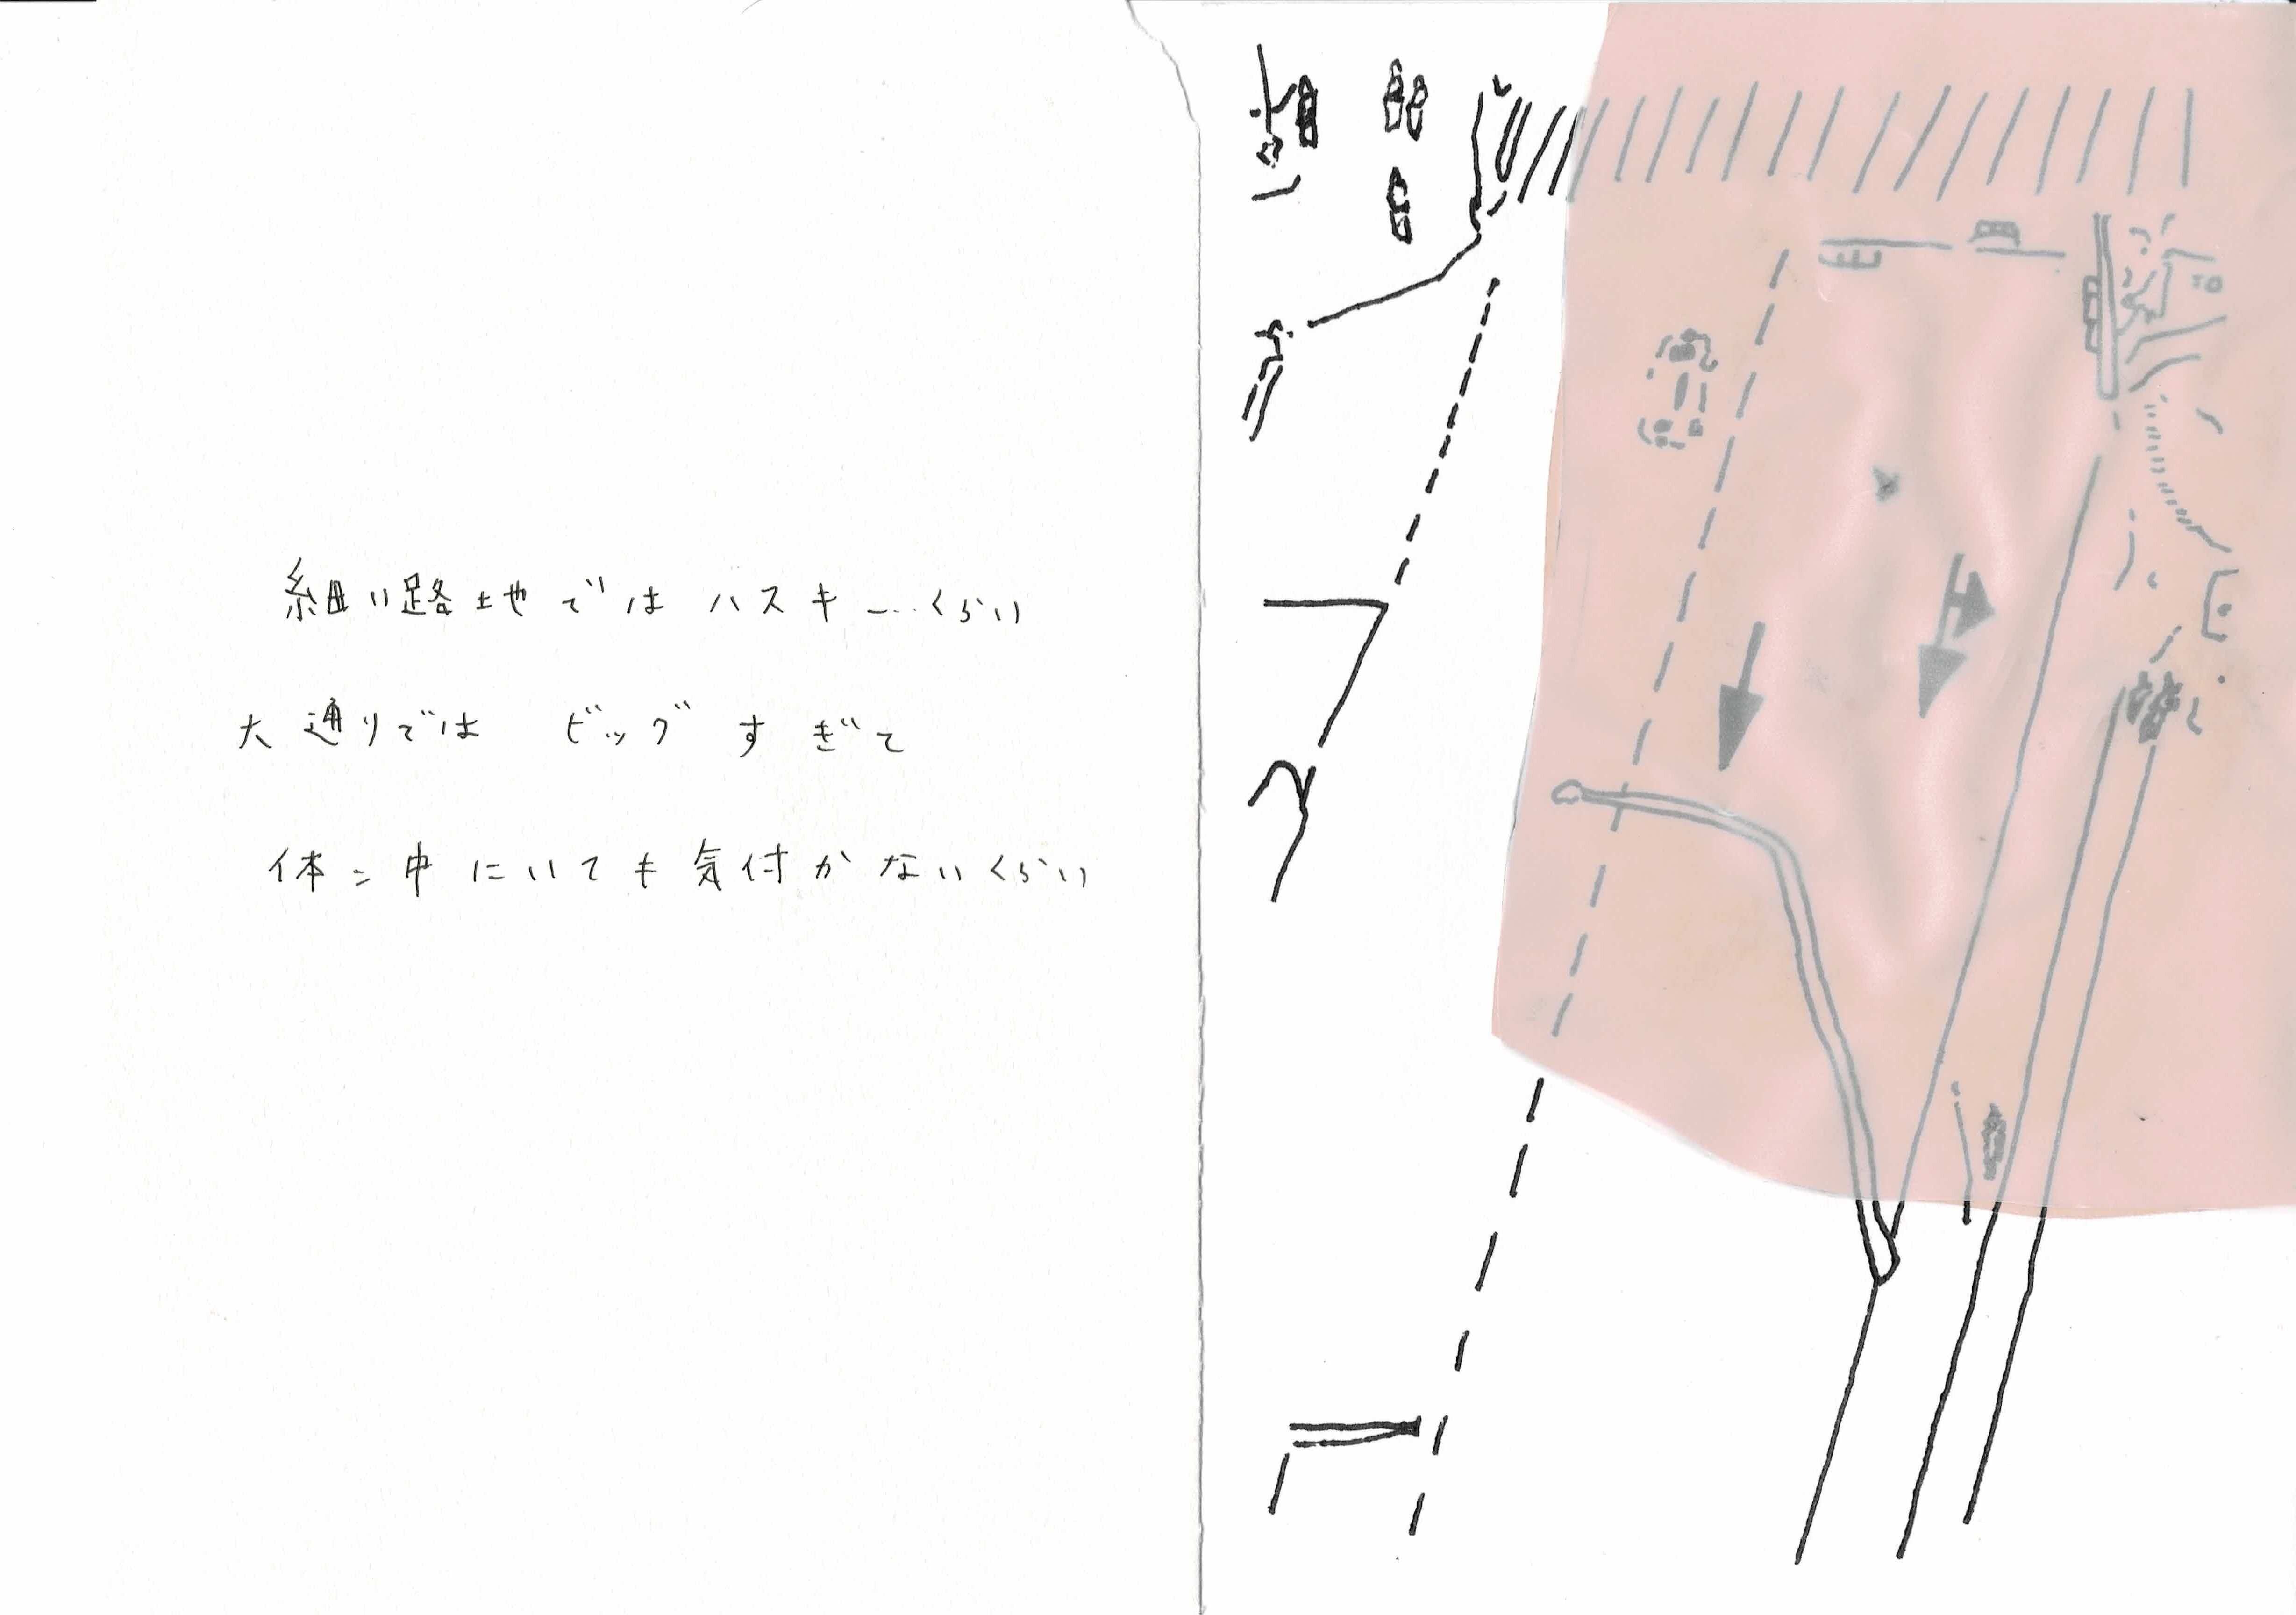 細い路地ではハスキーくらい
大通りでは ビッグすぎて
体ニ中にいても気付かないくらい